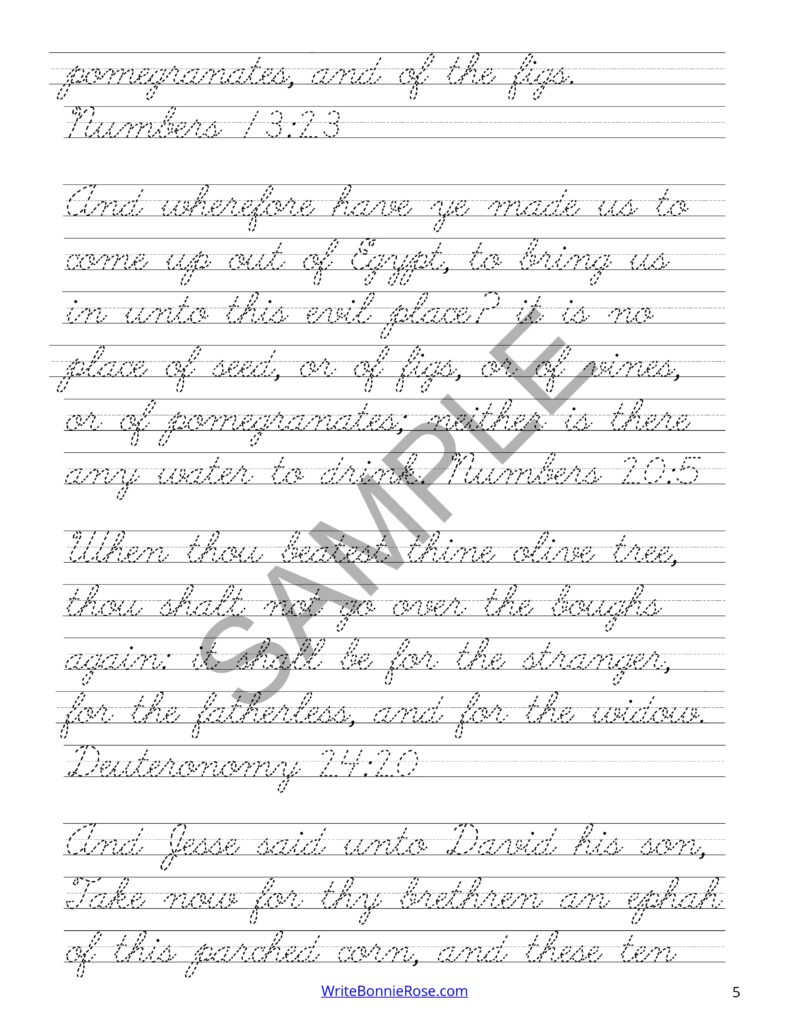 pomegranates, and of the figs.
Numbers 13:23
And wherefore have ye made us to
come up out of Egypt, to bring us
in unto this evil place? it is no
place of seed, or of figs, or of vines,
or of pomegranates; neither is there
any water to drink. Numbers 20:5
When thou beatest thine olive tree,
thou shalt not go over the boughs
again: it shall be for the stranger,
for the fatherless, and for the widow.
Deuteronomy 24:20
And Jesse said unto David his son,
Take now for thy brethren an ephah
of this parched corn, and these ten
SAMPLE
WriteBonnieRose.com
5